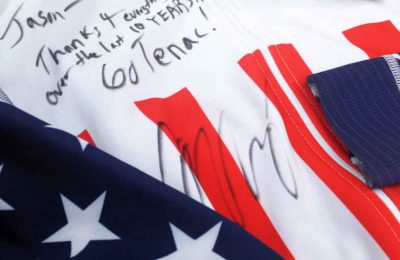 Jason—
Thanks 4 everything
over the last 10 YEARS!!
Go Tenac!